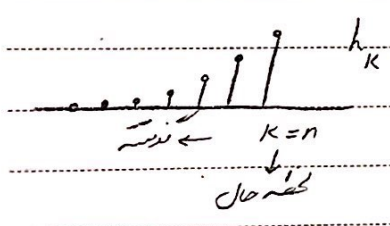 h_k
گذشته ←
k=n
↓
لحظه حال